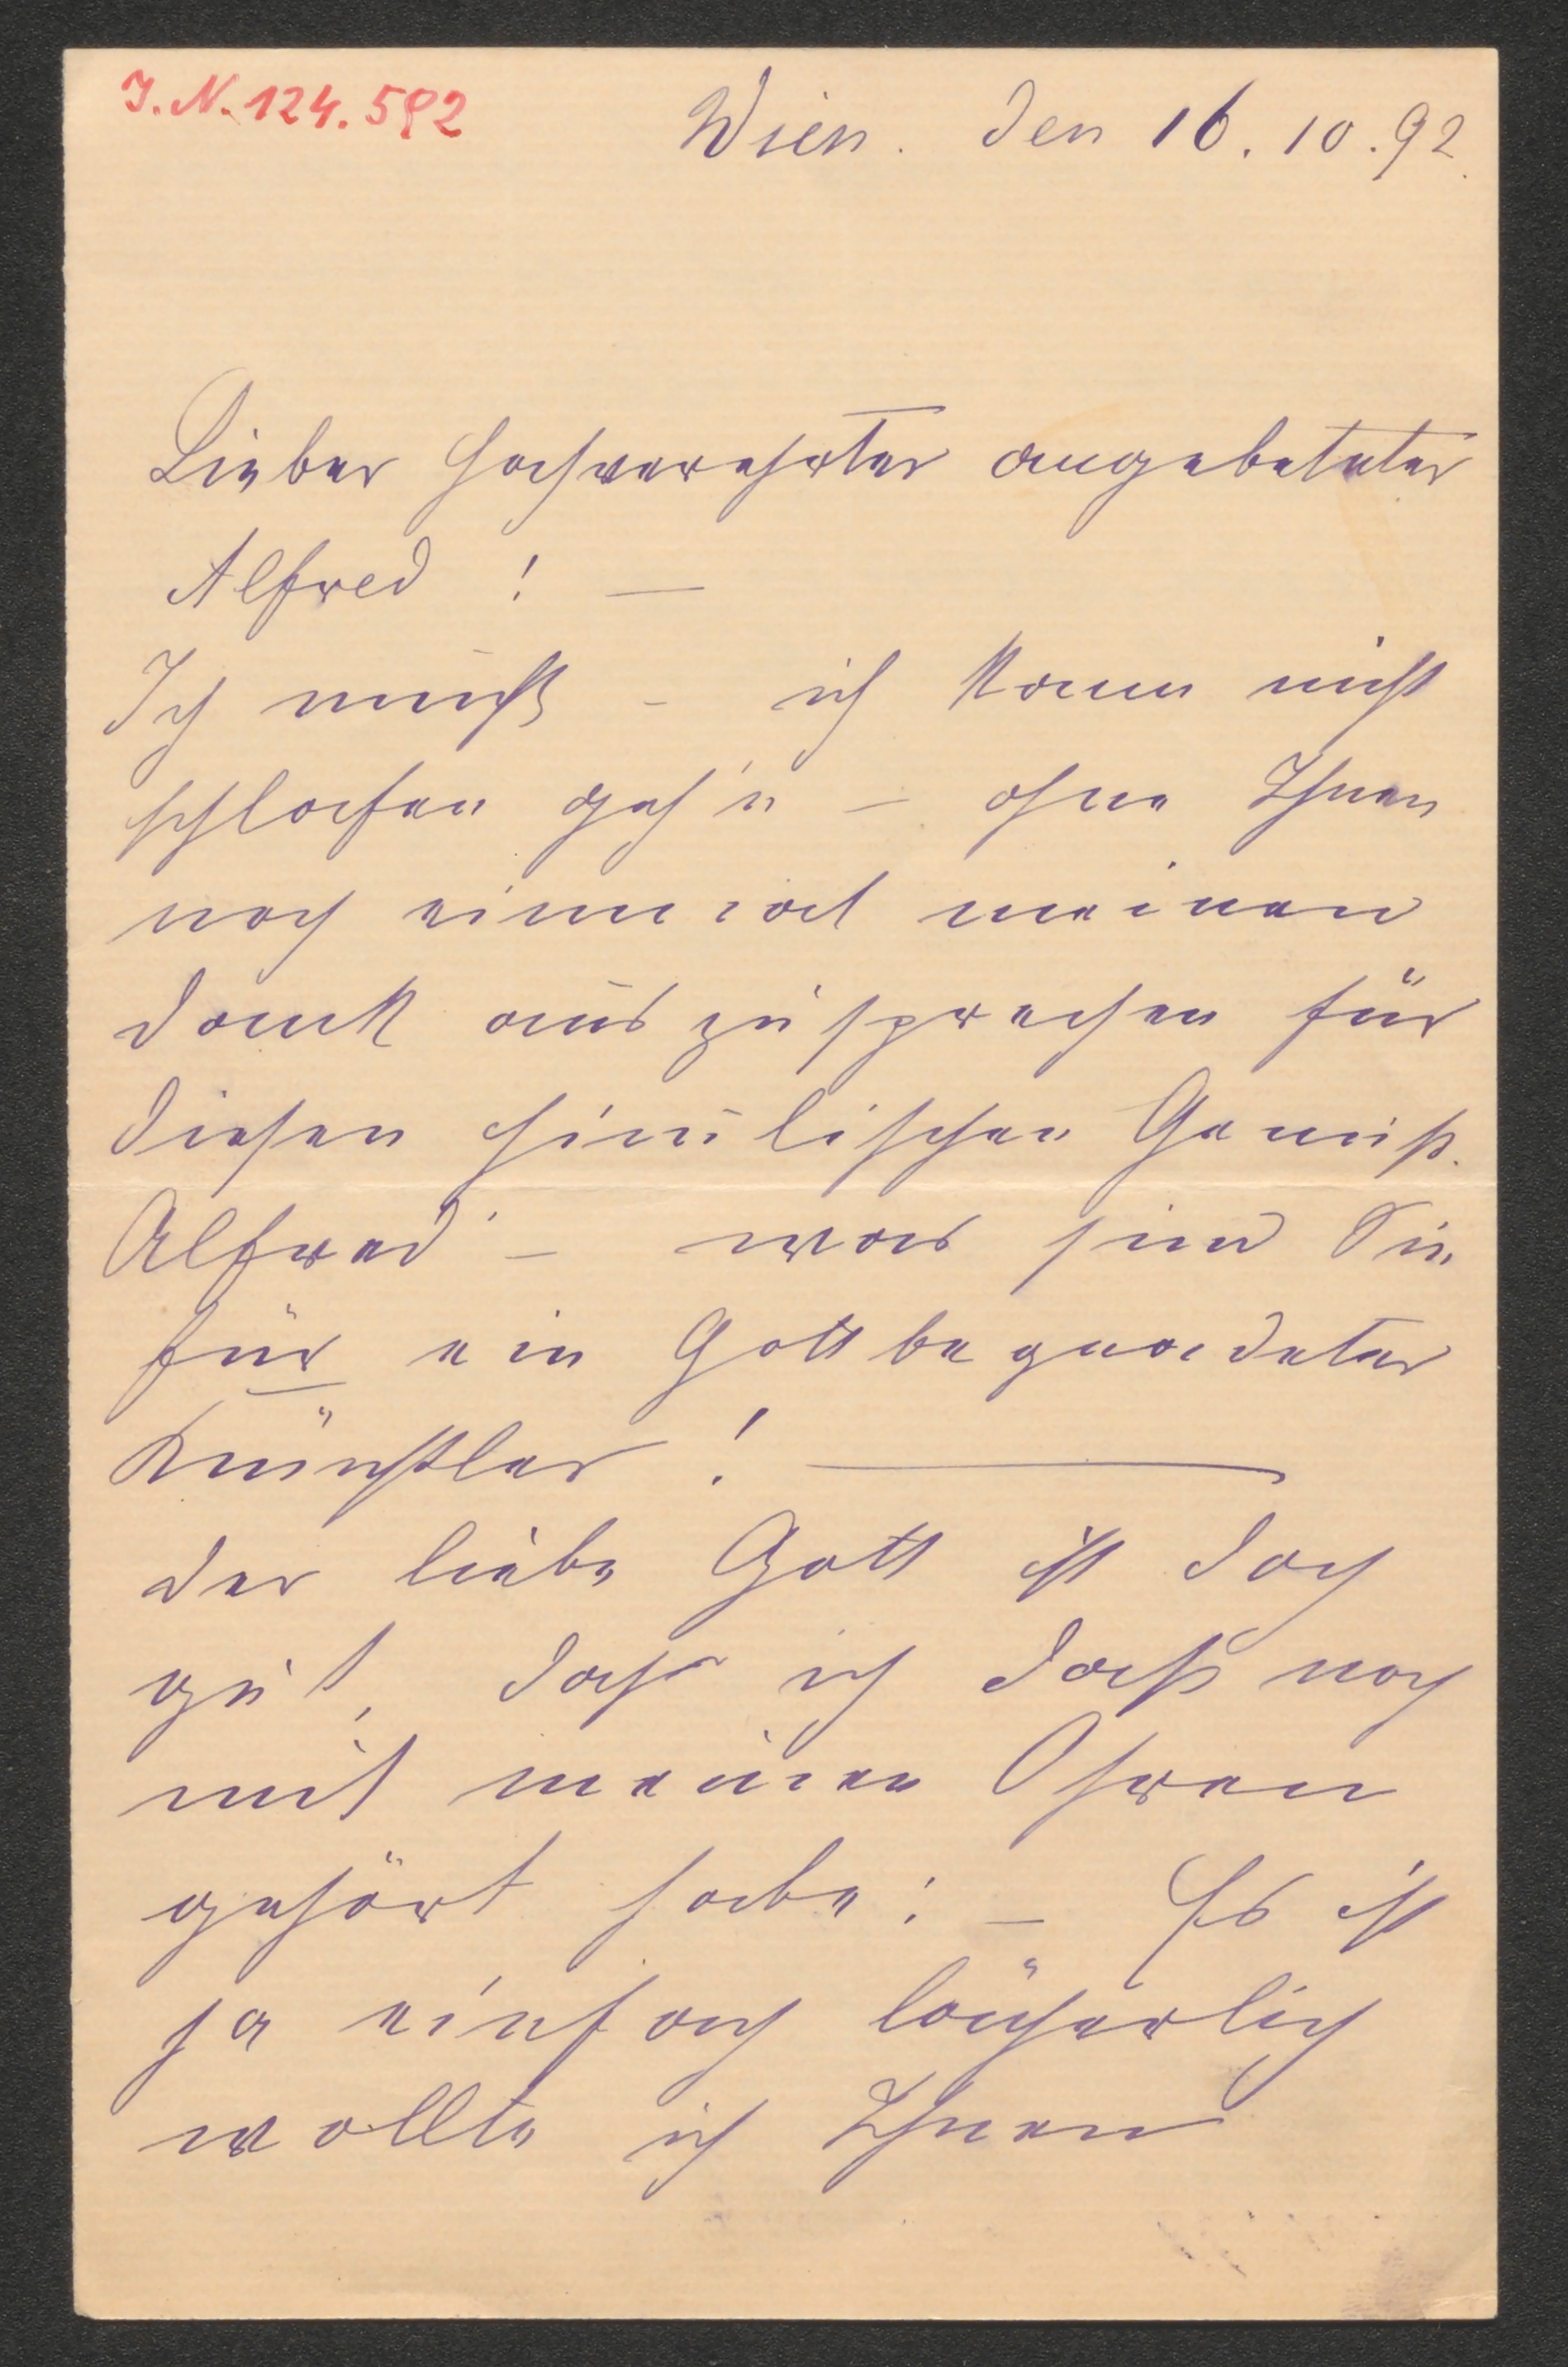 J.N. 124.592
Wien. den 16. 10. 92.
Lieber hochverehrter angebeteter
Alfred ! —
Ich muß – ich kann nicht
schlafen geh'n – ohne Ihnen
noch einmal meinen
Dank auszusprechen für
diesen him̄lischen Genuß.
Alfred – was sind Sie
für ein Gottbegnadeter
Künstler ! —
der liebe Gott ist doch
gut, daß ich daß noch
mit meinen Ohren
gehört habe : – Es ist
ja einfach lächerlich
wollte ich Ihnen